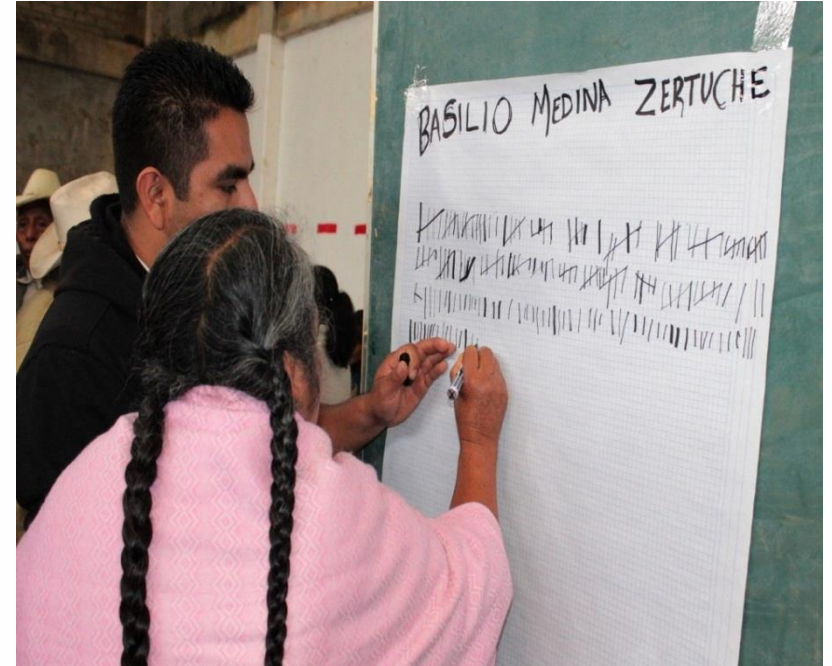 BASILIO MEDINA ZERTUCHE